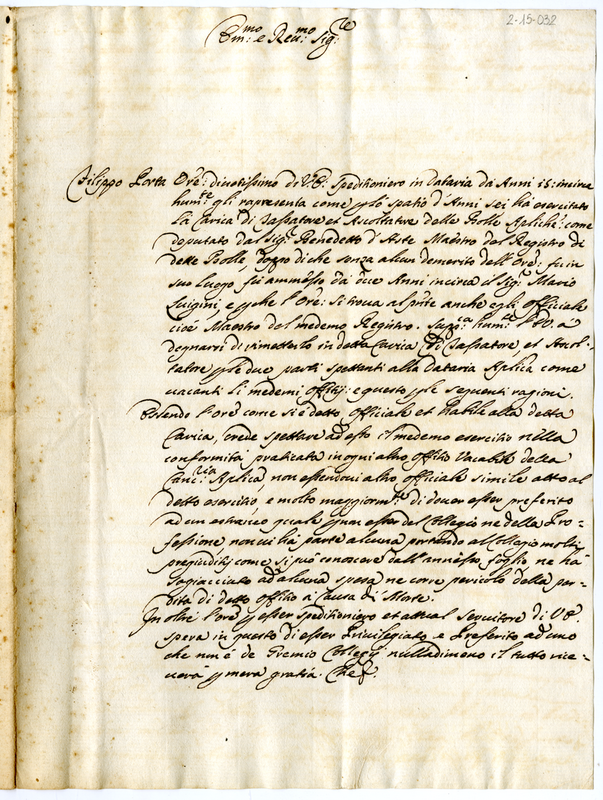 2-15-032
Em:mo e Rev:mo Sig:re
Filippo Porta Ore: divotissimo di V.E: Speditioniero in Dataria da Anni 15: incirca
hum:te gli rapresenta come p lo spatio d'Anni sei hà esercitato
la Carica di Tassatore et Ascoltatore delle Bolle Apliche: come
deputato dal Sig:r Benedetto d'Aste Maestro del Registro di
dette Bolle, doppo di che senza alcun demerito dell'Ore: fu in
suo luogo, fù ammesso da due Anni incirca il Sig:r Mario
Luigini, e p che l'Ore: si troua al pnte anche egli officiale
cioè Maestro del medemo Registro. Supp:ca hum:te l'E.V. à
degnarsi di rimetterlo in detta Carica di Tassatore, et Ascol-
tatore p le due parti spettanti alla Dataria Aplica come
uacanti li medemi offitij: e questo p le seguenti ragioni.
Essendo l'Ore come si è detto officiale et habile alla detta
Carica, crede spettare ad esso il medemo esercitio nella
conformità praticata in ogni altro offitio Vacabile della
Canc:ria Aplica non essendoui altro officiale simile atto al
detto esercitio, e molto maggiorm:te di douer esser preferito
ad un estraneo quale p non esser del Collegio ne della Pro-
fessione non ui hà parte alcuna portando al Collegio molti
pregiuditij come si può conoscere dall'annesso foglio ne hà
sogiacciuto ad alcuna spesa ne corre pericolo della per-
dita di detto offitio à causa di Morte.
In oltre l'Ore p esser speditioniero et attual Seruitore di V.E.
spera in questo di esser Priuilegiato, e Preferito ad uno
che non è de Gremio Collegij nulladimeno il tutto rice-
uerà p mera gratia. Che